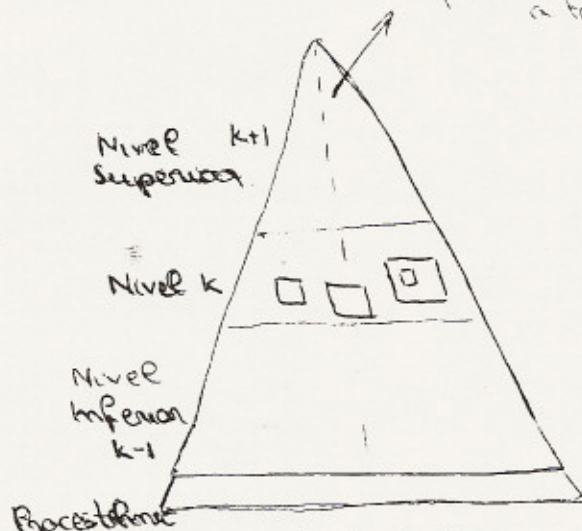 Nivel k+1
Superior
Nivel k
Nivel
Inferior
k-1